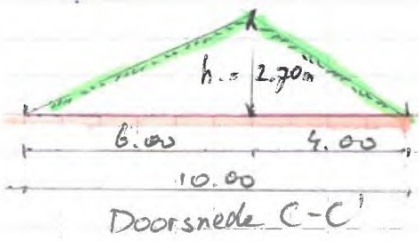 h = 2.70m
6.00 4.00
10.00
Doorsnede C-C'